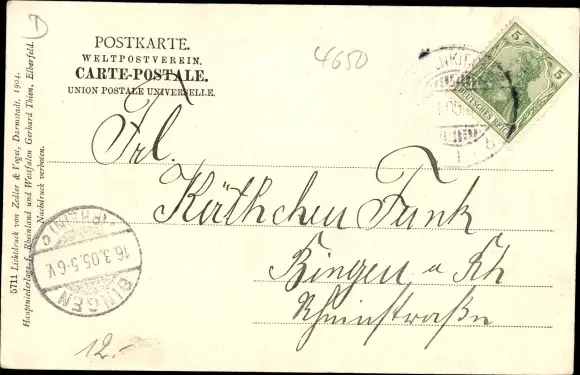 D
POSTKARTE.
WELTPOSTVEREIN.
CARTE-POSTALE.
UNION POSTALE UNIVERSELLE.
4650
5
5
DEUTSCHES REICH
Frl.
Käthchen Funk
Bingen a Rh
Rheinstraße
BINGEN
16.3.05.5-6 V.
(RHEIN)
12.-
5711 Lichtdruck von Zedler & Vogel, Darmstadt. 1904.
Hauptniederlage f. Rheinland und Westfalen Gerhard Thien, Elberfeld.
Nachdruck verboten.